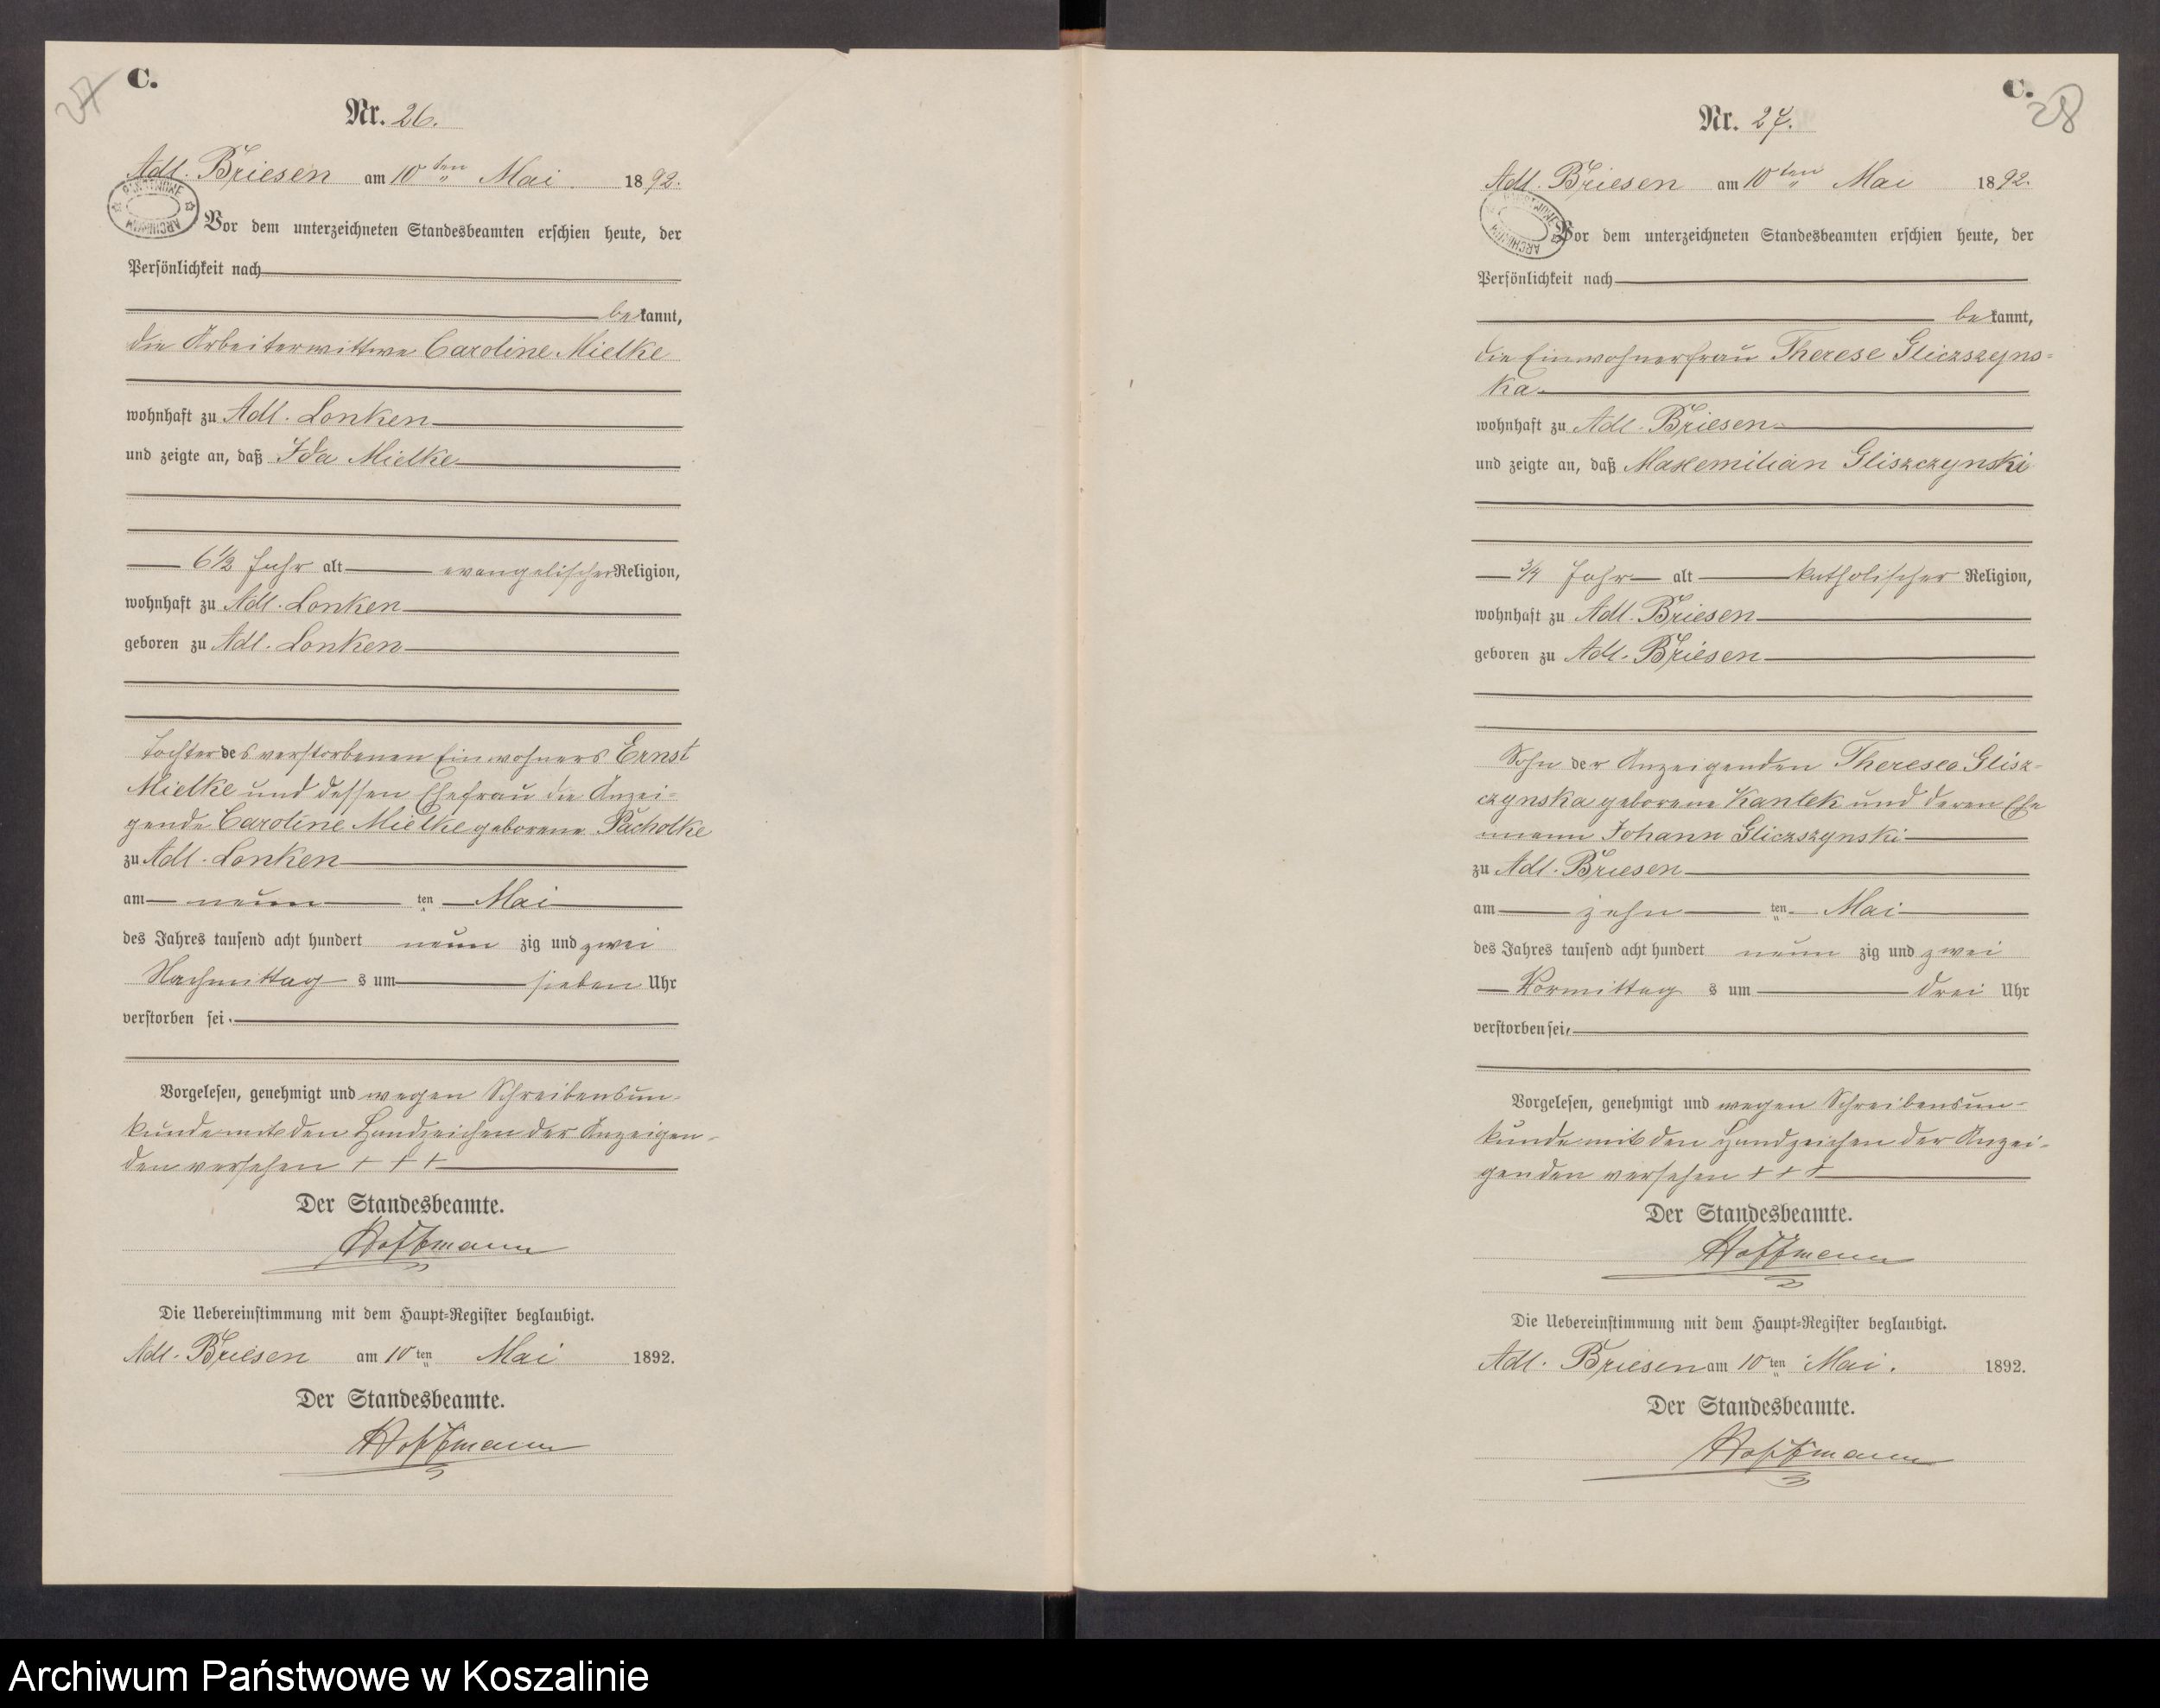 27
C.
Nr. 26.
Adl. Briesen am 10ten Mai. 1892.
ARCHIWUM PAŃSTWOWE
Vor dem unterzeichneten Standesbeamten erschien heute, der
Persönlichkeit nach
bekannt,
die Arbeiterwittwe Caroline Mielke
wohnhaft zu Adl. Lonken
und zeigte an, daß Ida Mielke
6 1/2 Jahr alt evangelischer Religion,
wohnhaft zu Adl. Lonken
geboren zu Adl. Lonken
Tochter des verstorbenen Einwohners Ernst
Mielke und dessen Ehefrau die Anzei=
gende Caroline Mielke geborene Pacholke
zu Adl. Lonken
am neun ten Mai
des Jahres tausend acht hundert neun zig und zwei
Nachmittag s um sieben Uhr
verstorben sei.
Vorgelesen, genehmigt und wegen Schreibensun-
kunde mit den Handzeichen der Anzeigen-
den versehen + + +
Der Standesbeamte.
Hoffmann
Die Uebereinstimmung mit dem Haupt=Register beglaubigt.
Adl. Briesen am 10ten Mai 1892.
Der Standesbeamte.
Hoffmann
C.
28
Nr. 27.
Adl. Briesen am 10ten Mai 1892.
ARCHIWUM PAŃSTWOWE
Vor dem unterzeichneten Standesbeamten erschien heute, der
Persönlichkeit nach
bekannt,
die Einwohnerfrau Therese Gliczszyns=
ka
wohnhaft zu Adl. Briesen
und zeigte an, daß Maxemilian Gliszczynski
3/4 Jahr alt katholischer Religion,
wohnhaft zu Adl. Briesen
geboren zu Adl. Briesen
Sohn der Anzeigenden Therese Glisz=
czynska geborene Kantek und deren Ehe
mann Johann Gliczszynski
zu Adl. Briesen
am zehn ten Mai
des Jahres tausend acht hundert neun zig und zwei
Vormittag s um drei Uhr
verstorben sei,
Vorgelesen, genehmigt und wegen Schreibensun-
kunde mit den Handzeichen der Anzei-
genden versehen + + +
Der Standesbeamte.
Hoffmann
Die Uebereinstimmung mit dem Haupt=Register beglaubigt.
Adl. Briesen am 10ten Mai. 1892.
Der Standesbeamte.
Hoffmann
Archiwum Państwowe w Koszalinie